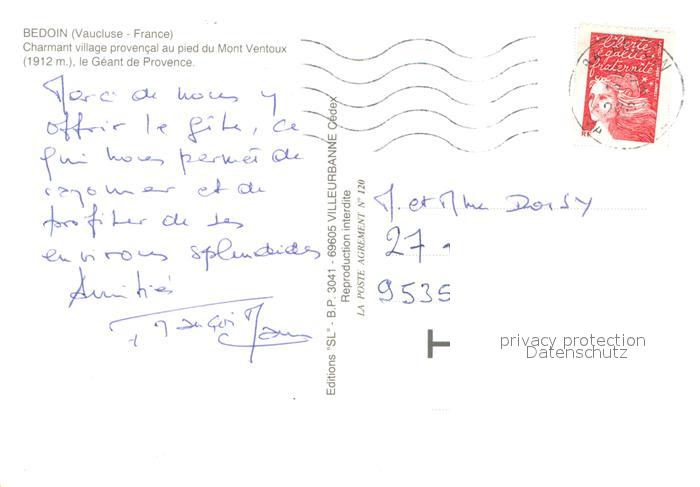 BEDOIN (Vaucluse - France)
Charmant village provençal au pied du Mont Ventoux
(1912 m.), le Géant de Provence.
Merci de nous y
offrir le gîte, ce
qui nous permet de
rayonner et de
profiter de ses
environs splendides
Amitiés
Editions "SL" - B.P. 3041 - 69605 VILLEURBANNE Cedex
Reproduction interdite
LA POSTE AGREMENT N° 120
Liberté
égalité
fraternité
RF
M. et Mme DOISY
27
9535
privacy protection
Datenschutz